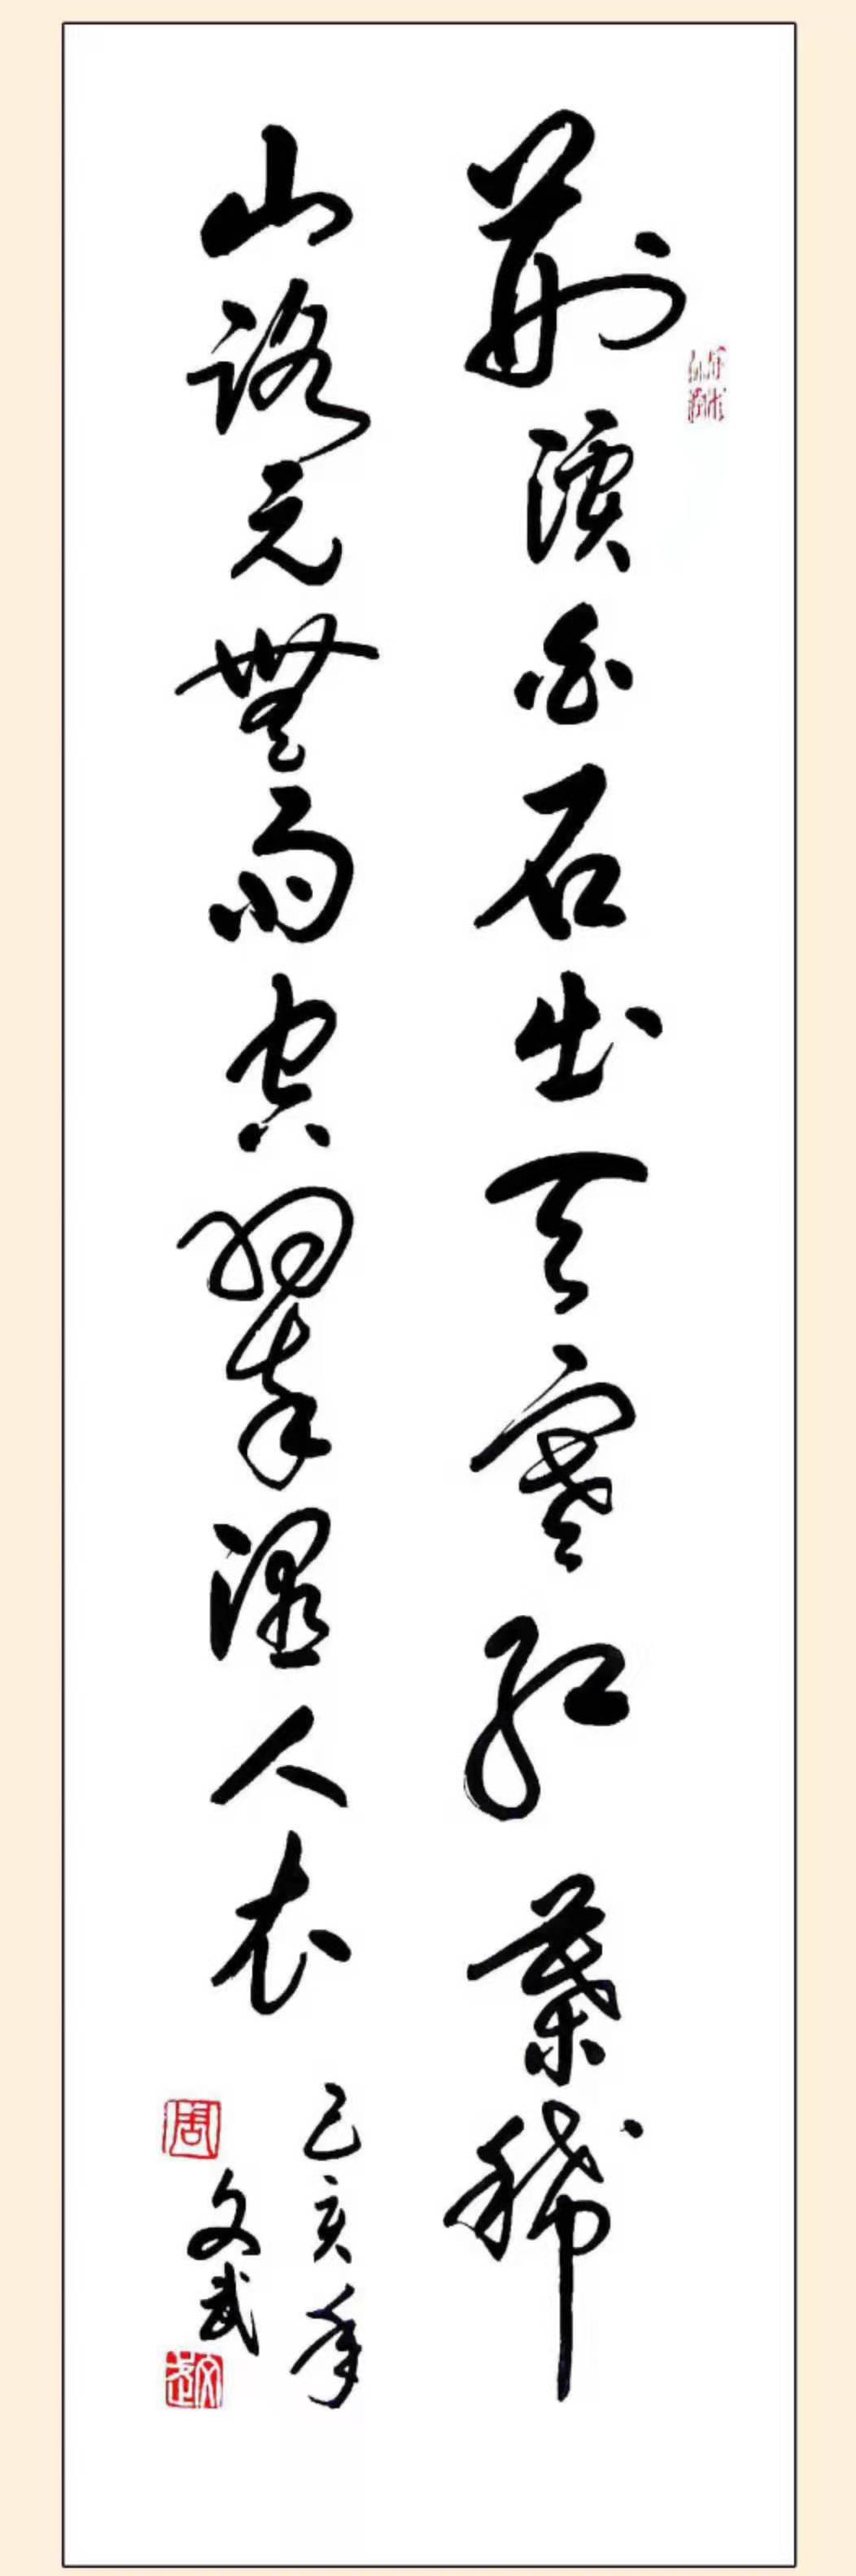 荆溪白石出天寒红葉稀
山路元無雨空翠濕人衣
己亥年
文武
周
文武